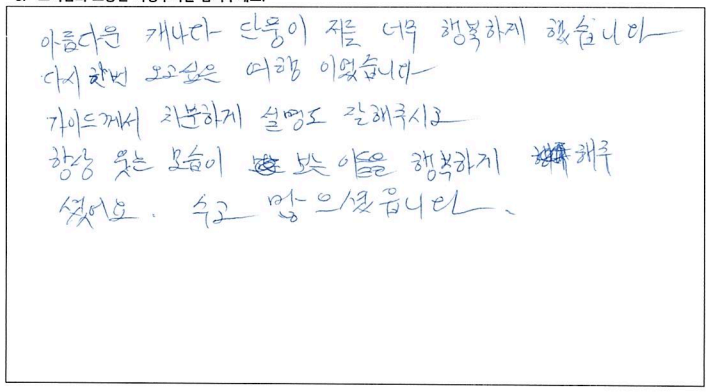 아름다운 캐나다 단풍이 저를 너무 행복하게 했습니다
다시 한번 오고싶은 여행 이었습니다
가이드께서 차분하게 설명도 잘해주시고
항상 웃는 모습이 보는 이들을 행복하게 해주
셨어요. 수고 많으셨읍니다.